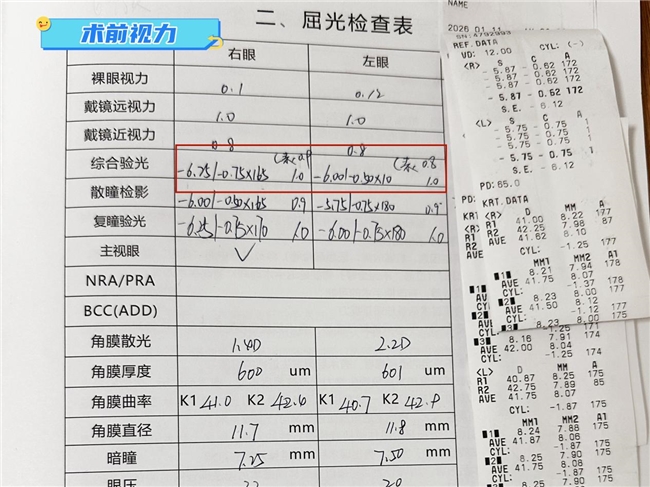 术前视力
二、屈光检查表
右眼 左眼
裸眼视力 0.1 0.12
戴镜远视力 1.0 1.0
戴镜近视力 0.8 0.8
综合验光 -6.75/-0.75×165 1.0 -6.00/-0.50×10 1.0
散瞳检影 -6.00/-0.50×165 0.9 -5.75/-0.75×180 0.9
复瞳验光 /-0.75×170 1.0 -6.00/-0.75×180 1.0
主视眼 ✓
NRA/PRA
BCC(ADD)
角膜散光 1.4D 2.2D
角膜厚度 600 um 601 um
角膜曲率 K1 41.0 K2 42.6 K1 40.7 K2 42.9
角膜直径 11.7 mm 11.8 mm
暗瞳 7.25 mm 7.50 mm
眼压
NAME
2026
REF.DATA
VD: 12.00 CYL: (-)
<R> S C A
- 5.87 - 0.62 172
- 5.87 - 0.62 172
- 5.87 - 0.62 172
S.E. - 6.12
<L> S C A
- 5.75 - 0.75 1
- 5.75 - 0.75 1
- 5.75 - 0.75 1
S.E. - 6.12
PD: 65.0
PD:
KRT.DATA
<R> D MM A
R1 41.00 8.22 177
R2 42.25 7.98 87
AVE 41.62 8.10
CYL: -1.25 177
MM1 MM2
1 8.21 7.94 178
AVE 41.75 8.07
CYL: -1.37 178
2 8.23 8.00 177
AVE 41.50 8.12
CYL: -1.12 177
3 8.23 8.00 175
-1.25 171
3 8.16 7.91 174
AVE 42.00 8.04
CYL: -1.25 174
<L> D MM A
R1 40.87 8.25 175
R2 42.75 7.89 85
AVE 41.75 8.07
CYL: -1.87 175
MM1 MM2 A1
1 8.24 7.88 175
AVE 41.87 8.06
CYL: -1.87 175
2 8.25 7.90 175
AVE 41.75 8.08
CYL: 175